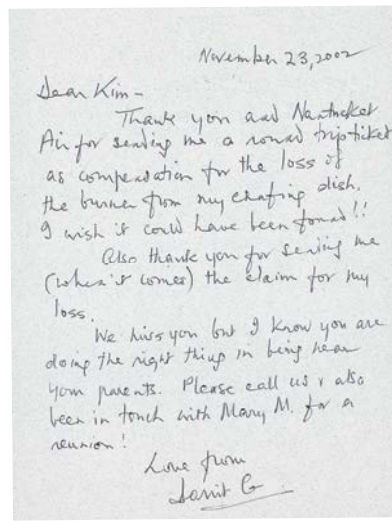 November 23, 2002
Dear Kim -
Thank you and Nantucket
Air for sending me a round trip ticket
as compensation for the loss of
the burner from my chafing dish.
I wish it could have been found!!
Also thank you for sending me
(when it comes) the claim for my
loss.
We miss you but I know you are
doing the right thing in being near
your parents. Please call us & also
been in touch with Mary M. for a
reunion!
Love from